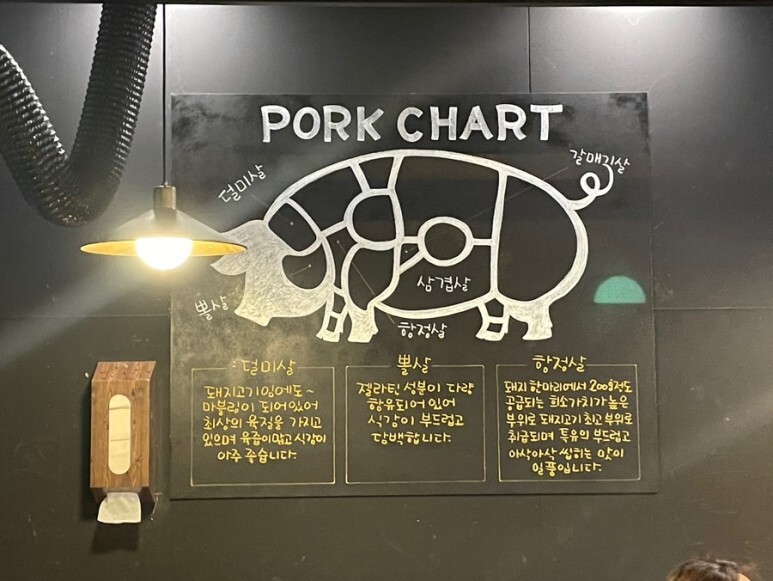 PORK CHART
덜미살
갈매기살
뽈살
삼겹살
항정살
덜미살
돼지고기임에도~
마블링이 되어있어
최상의 육질을 가지고
있으며 육즙이많고 식감이
아주 좋습니다.
뽈살
젤라틴 성분이 다량
함유되어 있어
식감이 부드럽고
담백합니다.
항정살
돼지 한마리에서 200g정도
공급되는 희소가치가 높은
부위로 돼지고기 최고 부위로
취급되며 특유의 부드럽고
아삭아삭 씹히는 맛이
일품입니다.